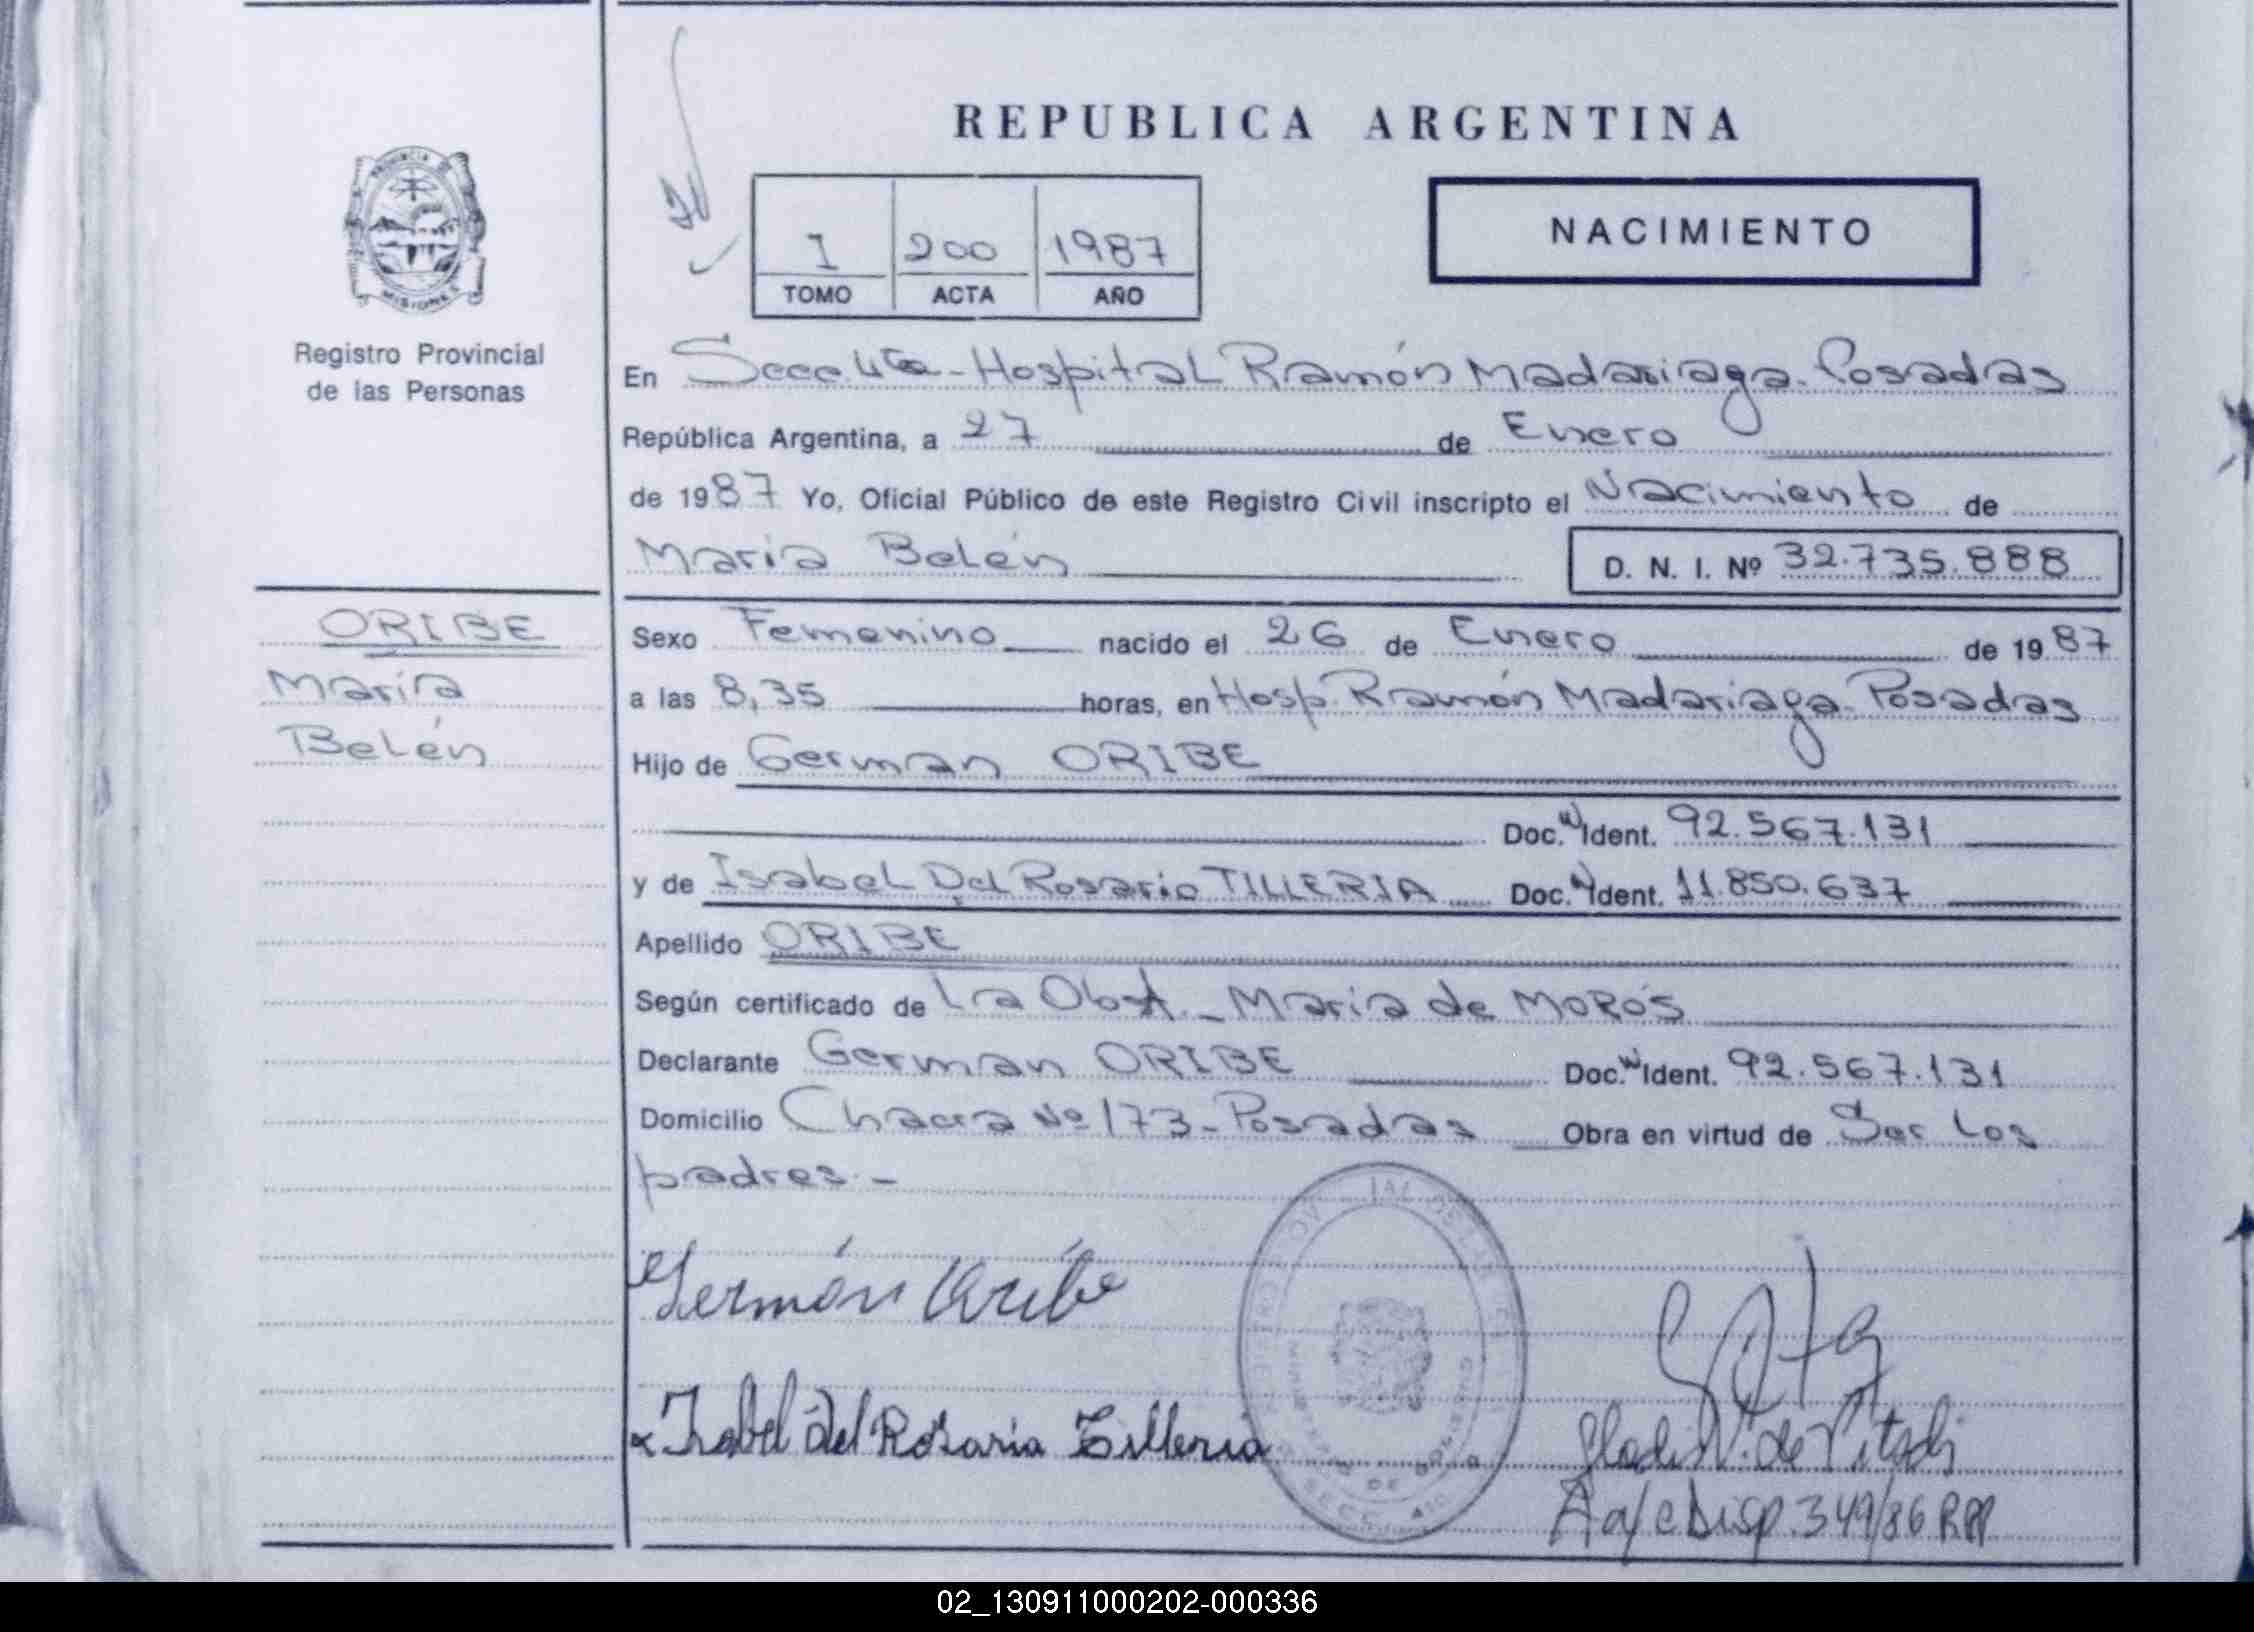 REPUBLICA ARGENTINA
PROVINCIA DE
MISIONES
Registro Provincial
de las Personas
I 200 1987
TOMO ACTA AÑO
NACIMIENTO
En Secc. 4ta - Hospital Ramón Madariaga - Posadas
República Argentina, a 27 de Enero
de 1987 Yo, Oficial Público de este Registro Civil inscripto el Nacimiento de
María Belén D. N. I. Nº 32.735.888
ORIBE
María
Belén
Sexo Femenino nacido el 26 de Enero de 1987
a las 8,35 horas, en Hosp. Ramón Madariaga - Posadas
Hijo de German ORIBE
Doc. Ident. 92.567.131
y de Isabel Del Rosario TILLERIA Doc. Ident. 11.850.637
Apellido ORIBE
Según certificado de La Obst. - Maria de MOROS
Declarante German ORIBE Doc. Ident. 92.567.131
Domicilio Chacra Nº 173 - Posadas Obra en virtud de Ser Los
padres. -
Germán Oribe
Isabel del Rosario Tilleria
A a/c Disp. 349/86 RPP
02_130911000202-000336